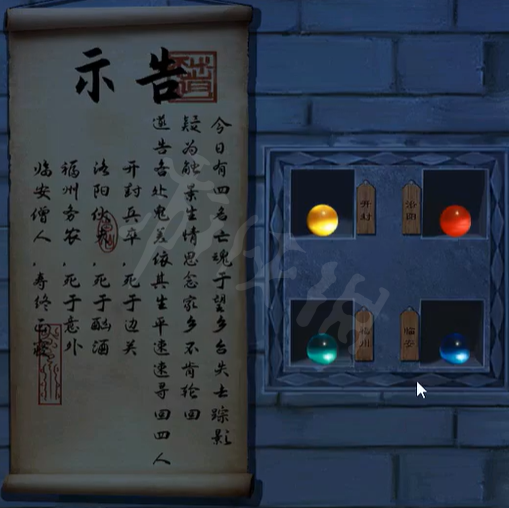 告示
今日有四名亡魂于望乡台失去踪影
疑为触景生情思念家乡不肯轮回
遂告各处鬼差依其生平速速寻回四人
开封兵卒，死于边关
洛阳伙夫，死于酗酒
福州务农，死于意外
临安僧人，寿终正寝
开封
洛阳
福州
临安